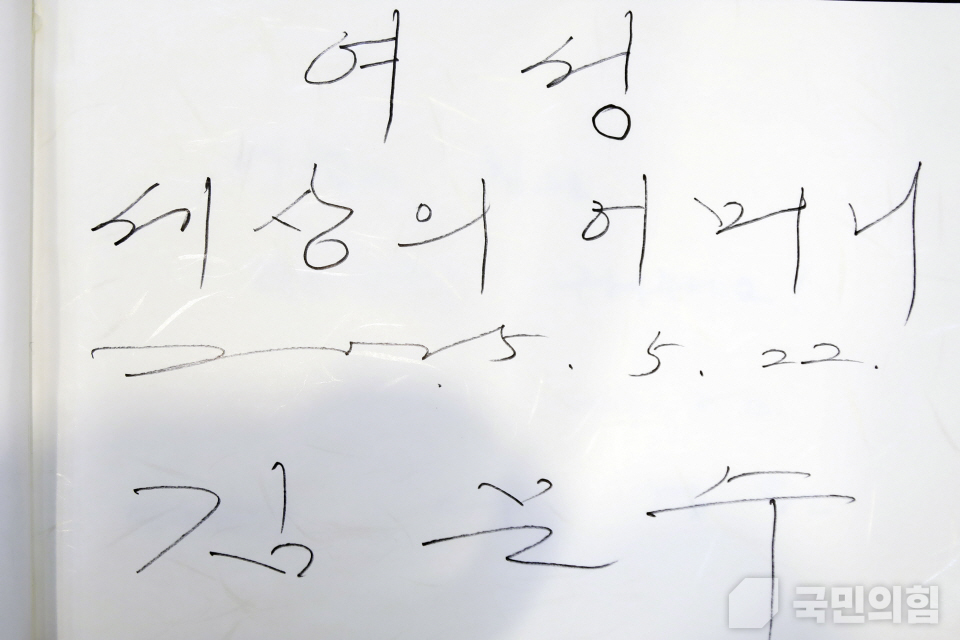 여성
세상의 어머니
2025. 5. 22.
김문수
국민의힘